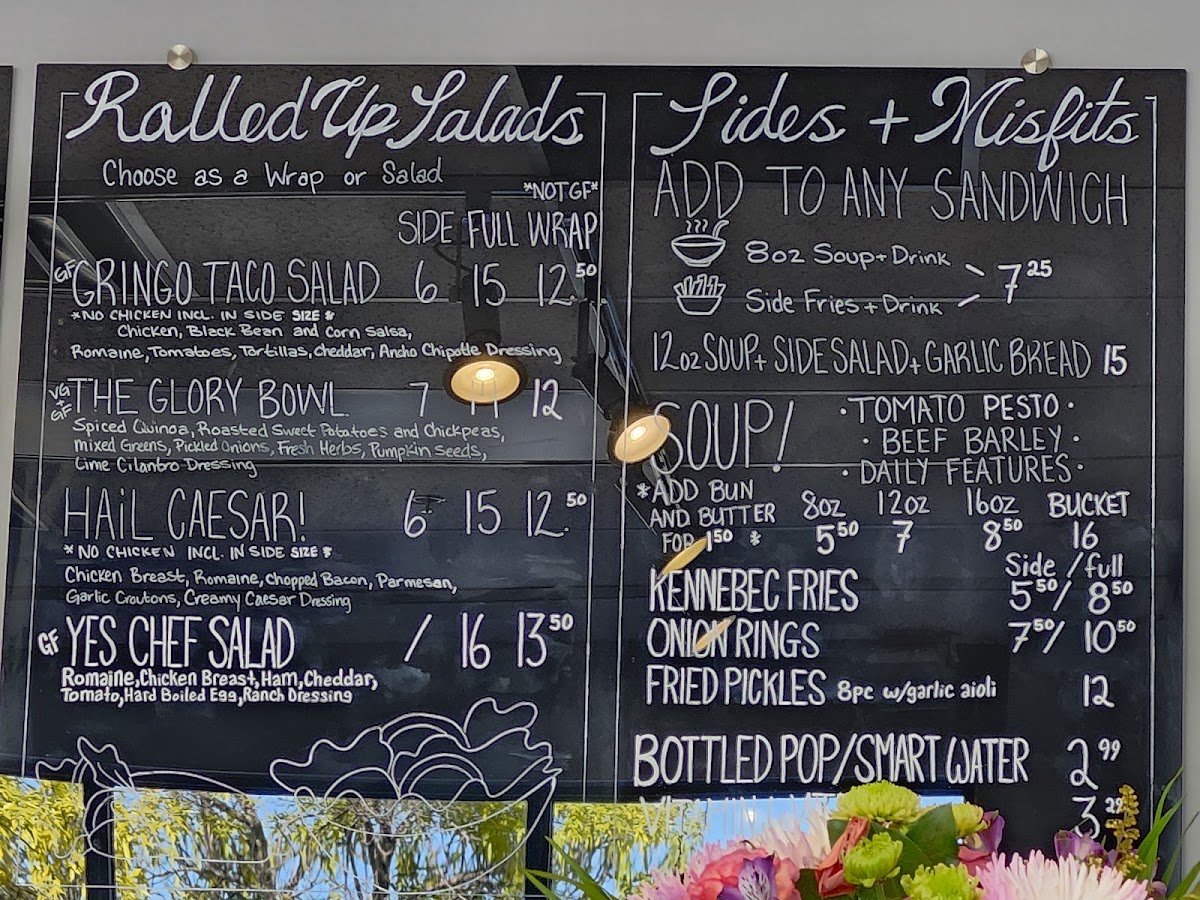 Rolled Up Salads
Choose as a Wrap or Salad
*NOT GF*
SIDE FULL WRAP
GF GRINGO TACO SALAD 6 15 12.50
*NO CHICKEN INCL. IN SIDE SIZE*
Chicken, Black Bean and Corn Salsa,
Romaine, Tomatoes, Tortillas, Cheddar, Ancho Chipotle Dressing
VG + GF THE GLORY BOWL 7 12
Spiced Quinoa, Roasted Sweet Potatoes and Chickpeas,
mixed Greens, Pickled Onions, Fresh Herbs, Pumpkin Seeds,
Lime Cilantro Dressing
HAIL CAESAR! 6 15 12.50
*NO CHICKEN INCL. IN SIDE SIZE*
Chicken Breast, Romaine, Chopped Bacon, Parmesan,
Garlic Croutons, Creamy Caesar Dressing
GF YES CHEF SALAD / 16 13 50
Romaine, Chicken Breast, Ham, Cheddar,
Tomato, Hard Boiled Egg, Ranch Dressing
Sides + Misfits
ADD TO ANY SANDWICH
8oz Soup + Drink
Side Fries + Drink
7 25
12oz SOUP + SIDE SALAD + GARLIC BREAD 15
SOUP!
· TOMATO PESTO ·
· BEEF BARLEY ·
· DAILY FEATURES ·
*ADD BUN
AND BUTTER
FOR 1 50 *
8oz 12oz 16oz BUCKET
5 50 7 8 50 16
Side / full
KENNEBEC FRIES 5 50 / 8 50
ONION RINGS 7 50 / 10 50
FRIED PICKLES 8pc w/garlic aioli 12
BOTTLED POP/SMART WATER 2 99
3